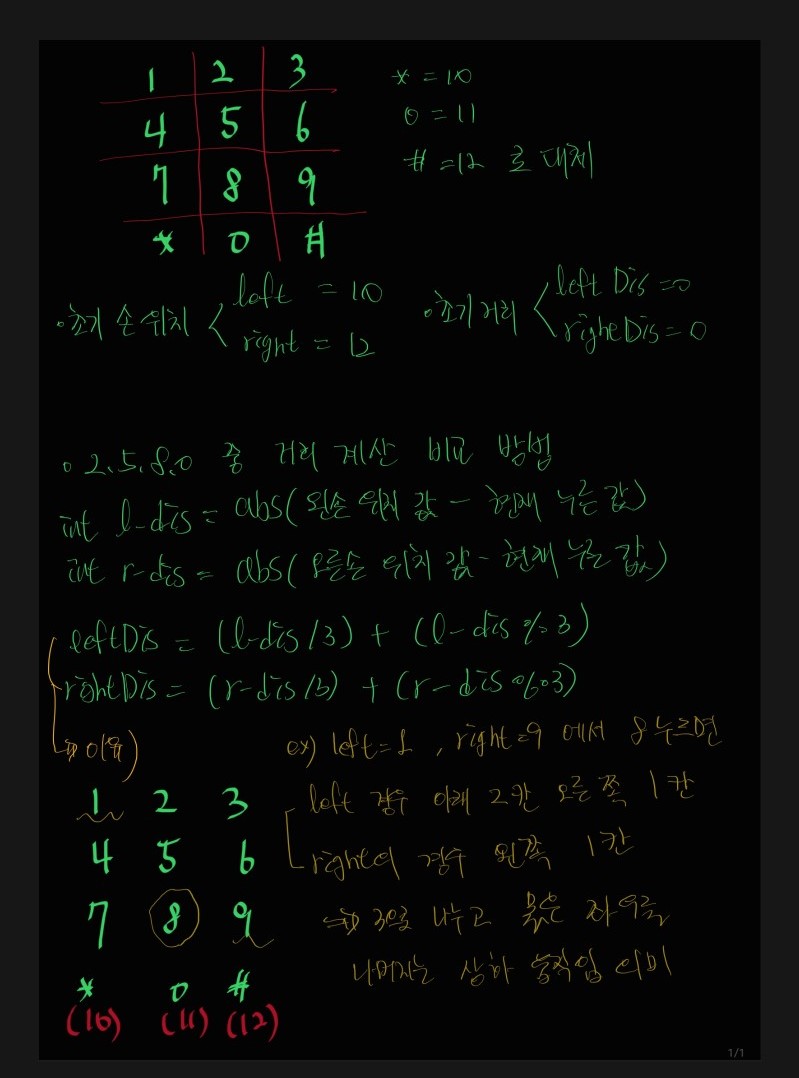 1 2 3
4 5 6
7 8 9
* 0 #
* = 10
0 = 11
# = 12 로 대체
• 초기 손 위치 < left = 10
right = 12
• 초기 거리 < left Dis = 0
right Dis = 0
• 2.5.8.0 중 거리 계산 비교 방법
int l-dis = abs(왼손 위치 값 - 현재 누른 값)
int r-dis = abs(오른손 위치 값 - 현재 누른 값)
leftDis = (l-dis/3) + (l-dis%3)
rightDis = (r-dis/3) + (r-dis%3)
⇒ 이유)
ex) left=1, right=9 에서 8 누르면
left 경우 아래 2칸 오른쪽 1칸
right의 경우 왼쪽 1칸
⇒ 3으로 나누고 몫은 좌우를
나머지는 상하 움직임 의미
1 2 3
4 5 6
7 8 9
* 0 #
(10) (11) (12)
1/1